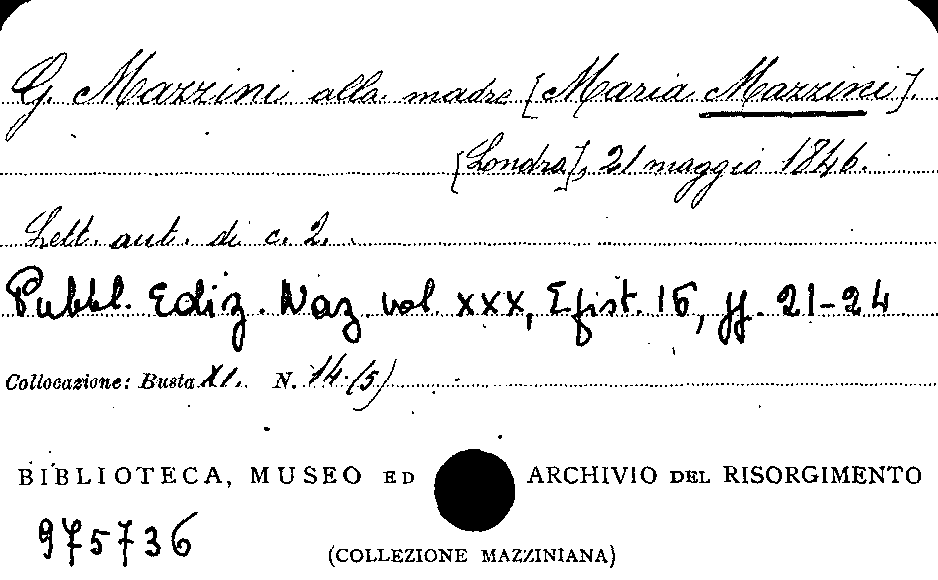 G. Mazzini alla madre [Maria Mazzini].
[Londra], 21 maggio 1846.
Lett. aut. di c. 2.
Pubbl. Ediz. Naz. vol. XXX, Epist. 16, pp. 21-24
Collocazione: Busta XI. N. 14.(5)
BIBLIOTECA, MUSEO ED ARCHIVIO DEL RISORGIMENTO
975736
(COLLEZIONE MAZZINIANA)